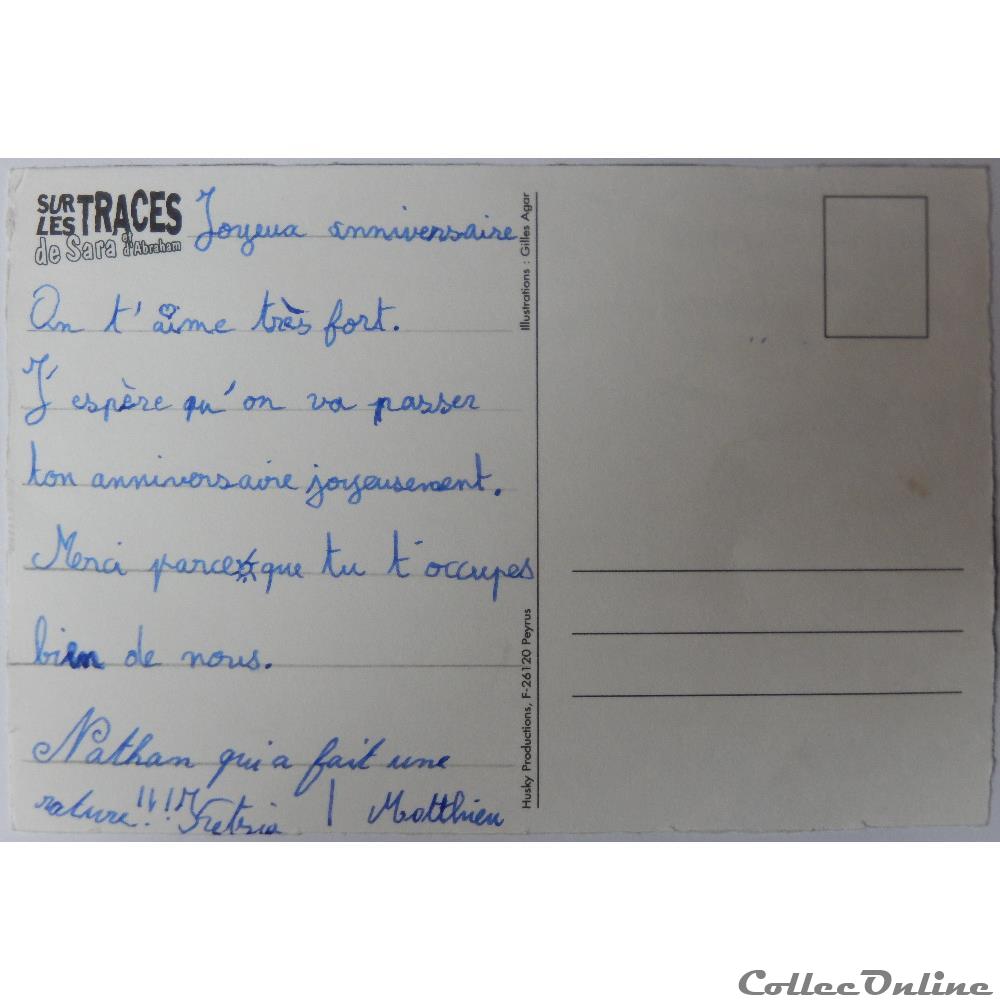 SUR LES TRACES
de Sara et d'Abraham
Joyeux anniversaire
On t'aime très fort.
J'espère qu'on va passer
ton anniversaire joyeusement.
Merci parce que tu t'occupes
bien de nous.
Nathan qui a fait une
rature!!!!
Matthieu
Illustrations : Gilles Agar
Husky Productions, F-26120 Peyrus
CollecOnline